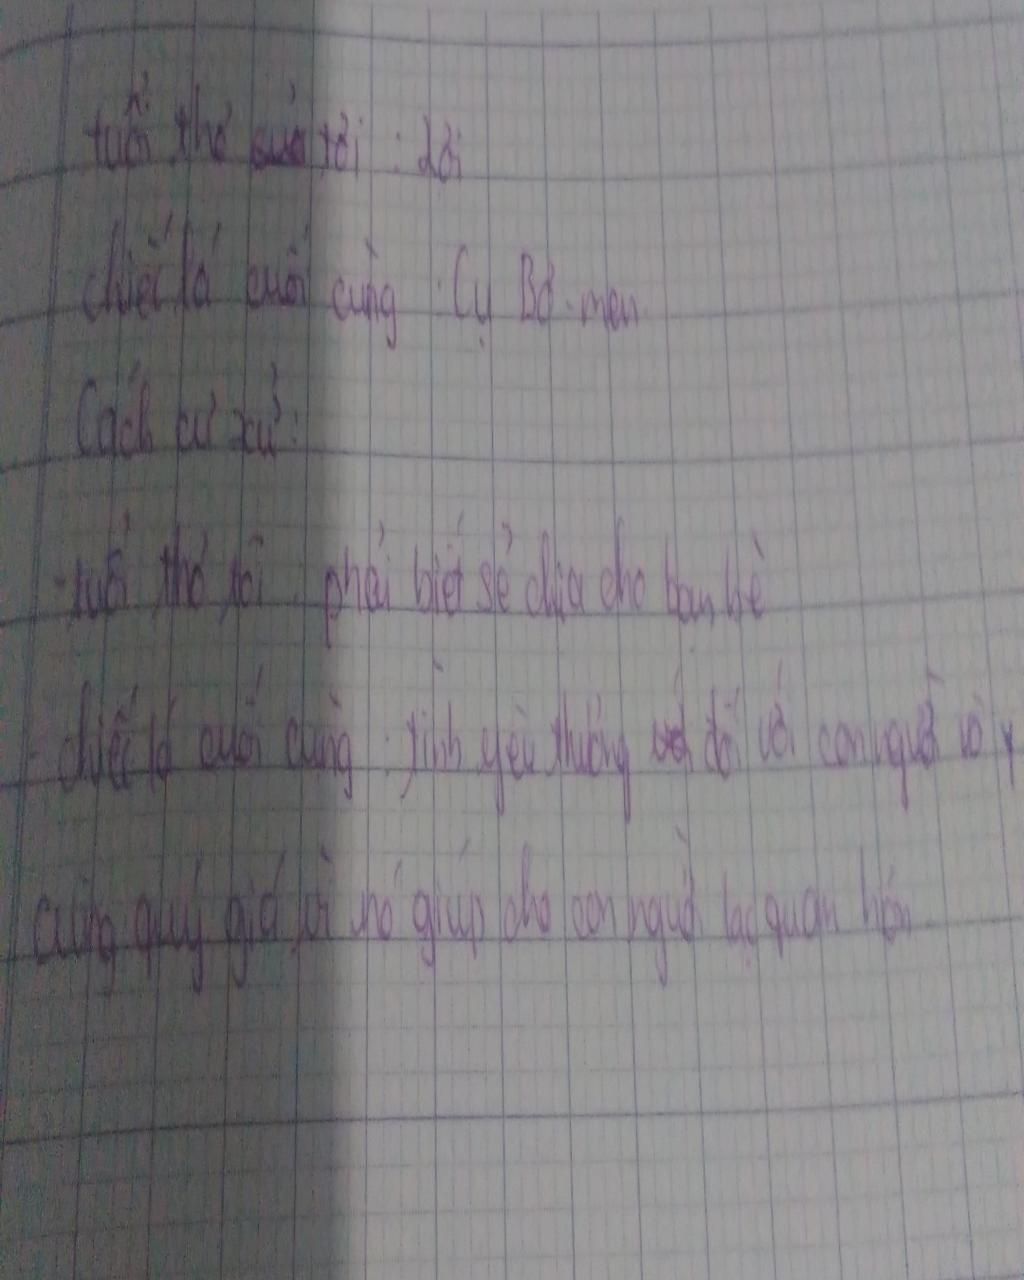 tuổi thơ của tôi : Lợi
chiếc lá cuối cùng : Cụ Bơ-men
Cách cư xử :
- tuổi thơ tôi : phải biết sẻ chia cho bạn bè
- chiếc lá cuối cùng : tình yêu thương đối với con người vô
cùng quý giá vì nó giúp cho con người lạc quan hơn.